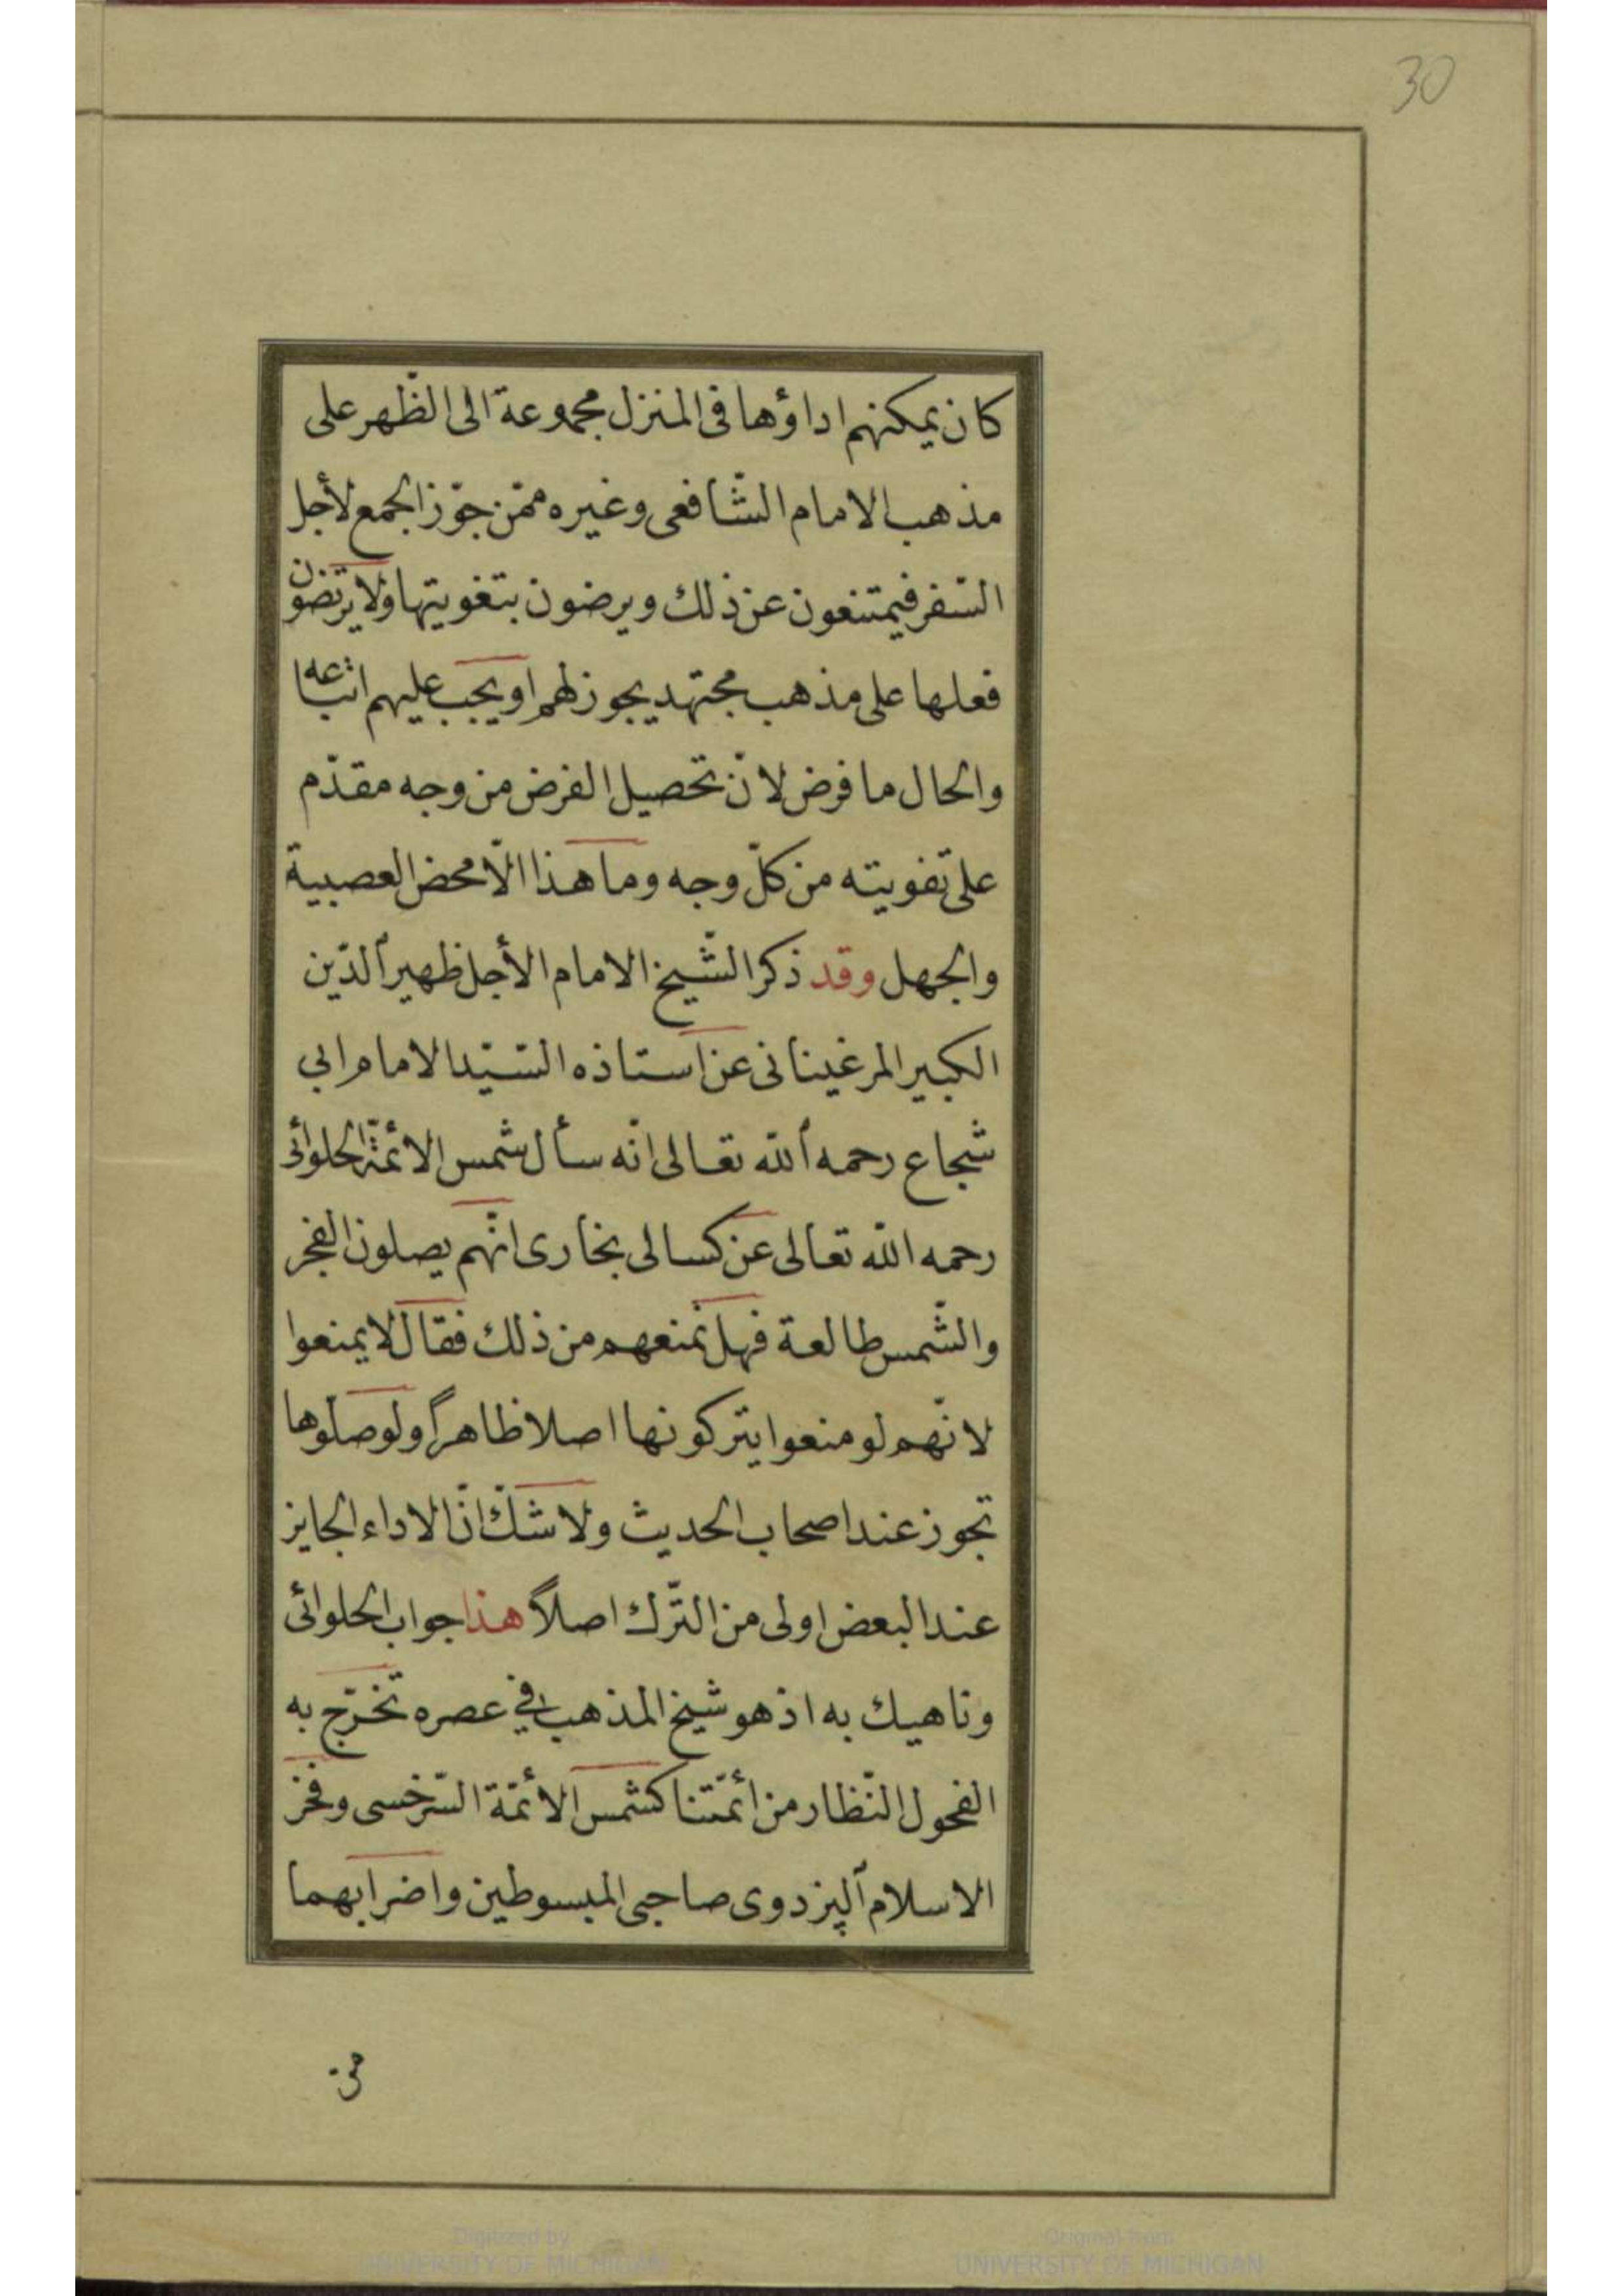 30
كان يمكنهم اداؤها فى المنزل مجموعة الى الظّهر على
مذهب الامام الشّافعى وغيره ممّن جوّز الجمع لأجل
السّفر فيمتنعون عن ذلك ويرضون بتغويتها ولا يرتضون
فعلها على مذهب مجتهد يجوز لهم او يجب عليهم اتباعه
والحال ما فرض لانّ تحصيل الفرض من وجه مقدّم
على تفويته من كلّ وجه وما هذا الّا محض العصبية
والجهل وقد ذكر الشّيخ الامام الأجل ظهير الدّين
الكبير المرغينانى عن استاذه السّيّد الامام ابي
شجاع رحمه الله تعالى انّه سأل شمس الائمّة الحلوائى
رحمه الله تعالى عن كسالى بخارى انّهم يصلون الفجر
والشّمس طالعة فهل نمنعهم من ذلك فقال لا يمنعوا
لانّهم لو منعوا يتركونها اصلا ظاهراً ولو صلّوها
تجوز عند اصحاب الحديث ولا شكّ انّ الاداء الجايز
عند البعض اولى من التّرك اصلاً هذا جواب الحلوائى
وناهيك به اذ هو شيخ المذهب في عصره تخرّج به
الفحول النّظار من ائمّتنا كشمس الأئمّة السّرخسى وفخر
الاسلام البزدوى صاحبى المبسوطين واضرابهما
من
Digitized by
UNIVERSITY OF MICHIGAN
Original from
UNIVERSITY OF MICHIGAN